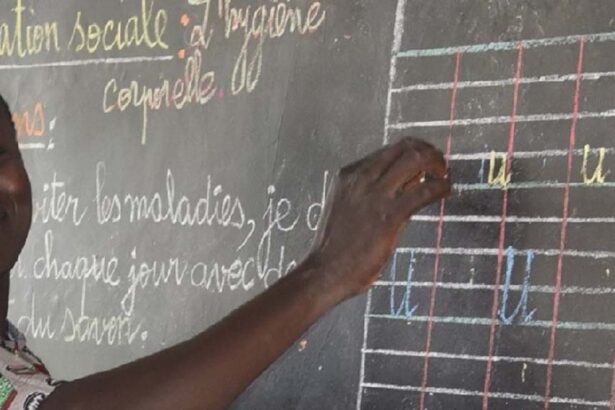 ation sociale : L'hygiène
corporelle.
ns :
iter les maladies, je d
chaque jour avec de
du savon.
u u
u u